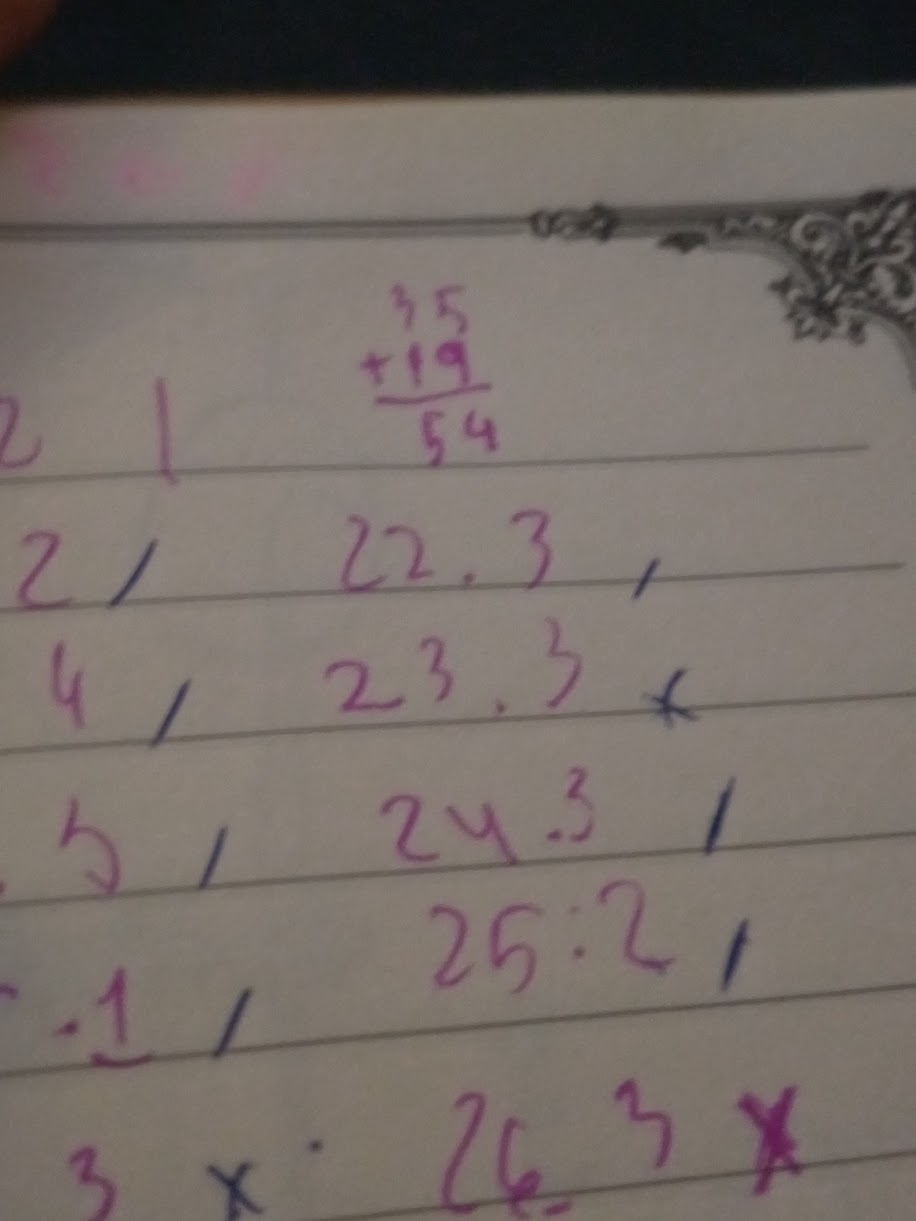 35
+19
54
2 |
2 / 22.3 /
4 / 23.3 x
.5 / 24.3 /
25:2 /
.1 /
3 x . 26 3 x